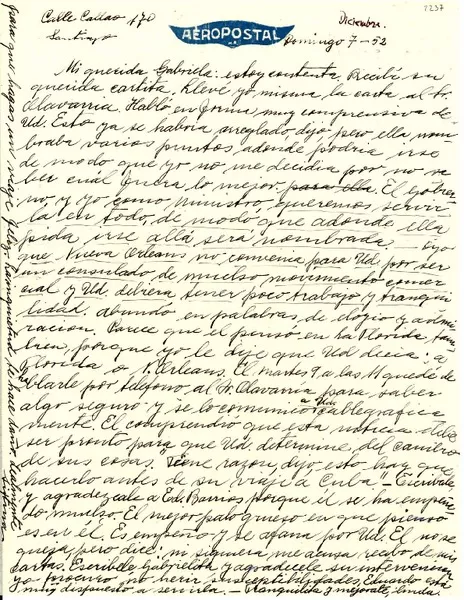 Calle Callao 170
Santiago
AEROPOSTAL
Diciembre
Domingo 7-52
2237
Mi querida Gabriela: estoy contenta. Recibí su
querida cartita. Llevé yo misma la carta al Sr.
Olavarría. Habló en forma muy comprensiva de
Ud. Esto ya se habría arreglado, dijo, pero ella nom-
braba varios puntos adonde podría irse
de modo que yo no me decidía por no sa-
ber cuál fuera lo mejor para ella. El Gobier-
no, y yo como Ministro, queremos servir-
la en todo, de modo que adonde ella
pida irse allá será nombrada.
que Nueva Orleans no convenía para Ud. por ser
un consulado de mucho movimiento comer-
cial y Ud. debiera tener poco trabajo y tranqui-
lidad. abundó en palabras de elogio y admi-
ración. Parece que él pensó en la Florida tam-
bién, porque yo le dije que Ud decía: a
Florida o N. Orleans. El martes 9 a las 11 quedé de
hablarle por teléfono al Sr. Olavarría para saber
algo seguro y se lo comunico a Ud. cablegrafica-
mente. El comprendió que esta noticia debe
ser pronto para que Ud. determine del cambio
de sus cosas. "Tiene razón, dijo, esto hay que
hacerlo antes de su viaje a Cuba". Escríbale
y agradézcale a Edo. Barrios porque él se ha empeña-
do mucho. El mejor palo grueso en que pienso
es en él. Es empeño y se afana por Ud. El no se
queja, pero dice: ni siquiera me acusa recibo de mis
cartas. Escríbale Gabrielita y agradézcale su intervención
yo procuro no herir susceptibilidades, Eduardo está
muy dispuesto a servirla. - Tranquila y mejórate, linda.
para que hagas un viaje feliz. La inquietud te hace daño.